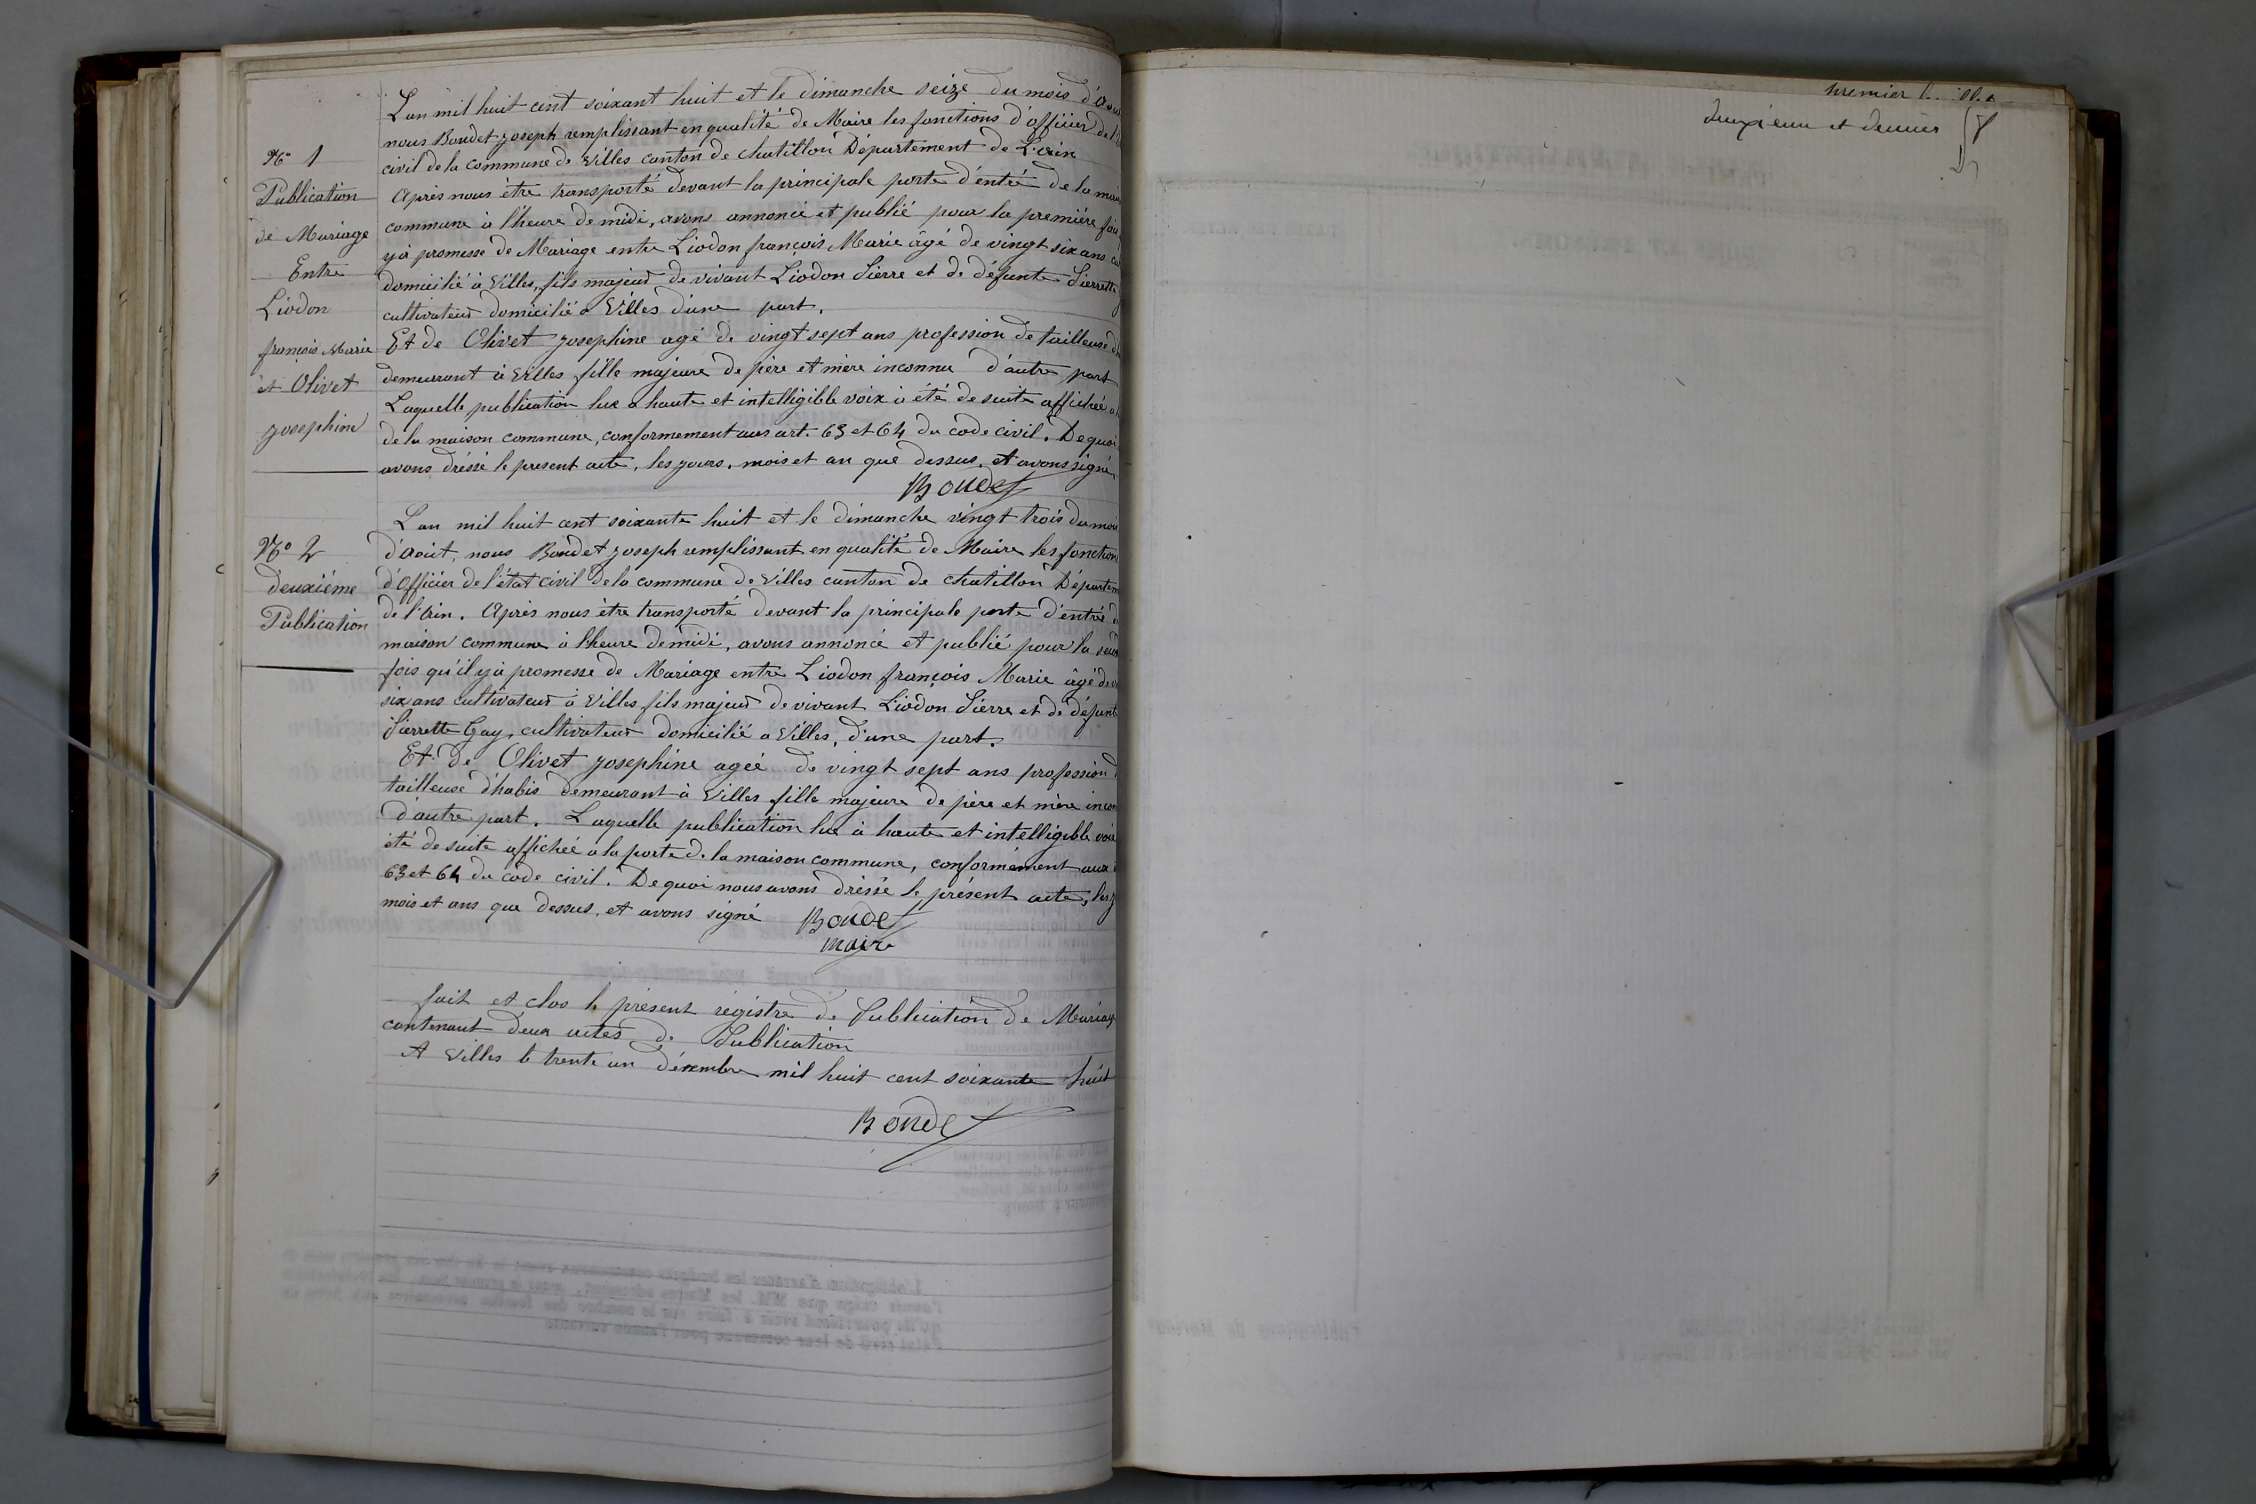 No 1
Publication
de Mariage
Entre
Liodon
françois Marie
et Olivet
Josephine
L'an mil huit cent soixant huit et le dimanche seize du mois d'aou
nous Boudet Joseph remplissant en qualité de Maire les fonctions d'officier de l'
civil de la commune de Villes canton de chatillon Département de L'ain
Après nous être transporté devant la principale porte d'entré de la mais
commune à l'heure de midi, avons annoncé et publié pour la première foi
y à promesse de Mariage entre Liodon françois Marie âgé de vingt six ans
domicilié à Villes, fils majeur de vivant Liodon Pierre et de défunte Pierrette
cultivateur domicilié a Villes d'une part.
Et de Olivet Josephine agé de vingt sept ans profession de tailleuse
demeurant à Villes fille majeure de père et mère inconnu d'autre part
Laquelle publication lue a haute et intelligible voix à été de suite affichée
de la maison commune, conformement aux art. 63 et 64 du code civil. De quoi
avons dréssé le present acte, les jours, mois et an que dessus, et avons signé
Boudet
No 2
deuxiéme
Publication
L'an mil huit cent soixante huit et le dimanche vingt trois du moi
d'Août, nous Boudet Joseph remplissant en qualité de Maire les fonction
d'Officier de l'état civil de la commune de Villes canton de chatillon Départem
de l'ain. Après nous être transporté devant la principale porte d'entré
maison commune à l'heure de midi, avons annoncé et publié pour la
fois qu'il y à promesse de Mariage entre Liodon françois Marie âgé de
six ans cultivateur à Villes fils majeur de vivant Liodon Pierre et de défunt
Pierrette Gay, cultivateur domicilié a Villes, d'une part.
Et de Olivet Josephine agée de vingt sept ans profession d
tailleuse d'habis demeurant à Villes fille majeure de père et mère incon
d'autre part. Laquelle publication lue à haute et intelligible voix
été de suite affichée a la porte de la maison commune, conformément aux
63 et 64 du code civil. De quoi nous avons dréssé le présent acte, les j
mois et ans que dessus, et avons signé Boudet
maire
fait et clos le présent régistre de Publication de Mariag
contenant deux actes de Publication
A Villes le trente un décembre mil huit cent soixante huit
Boudet
premier
deuxieme et dernier